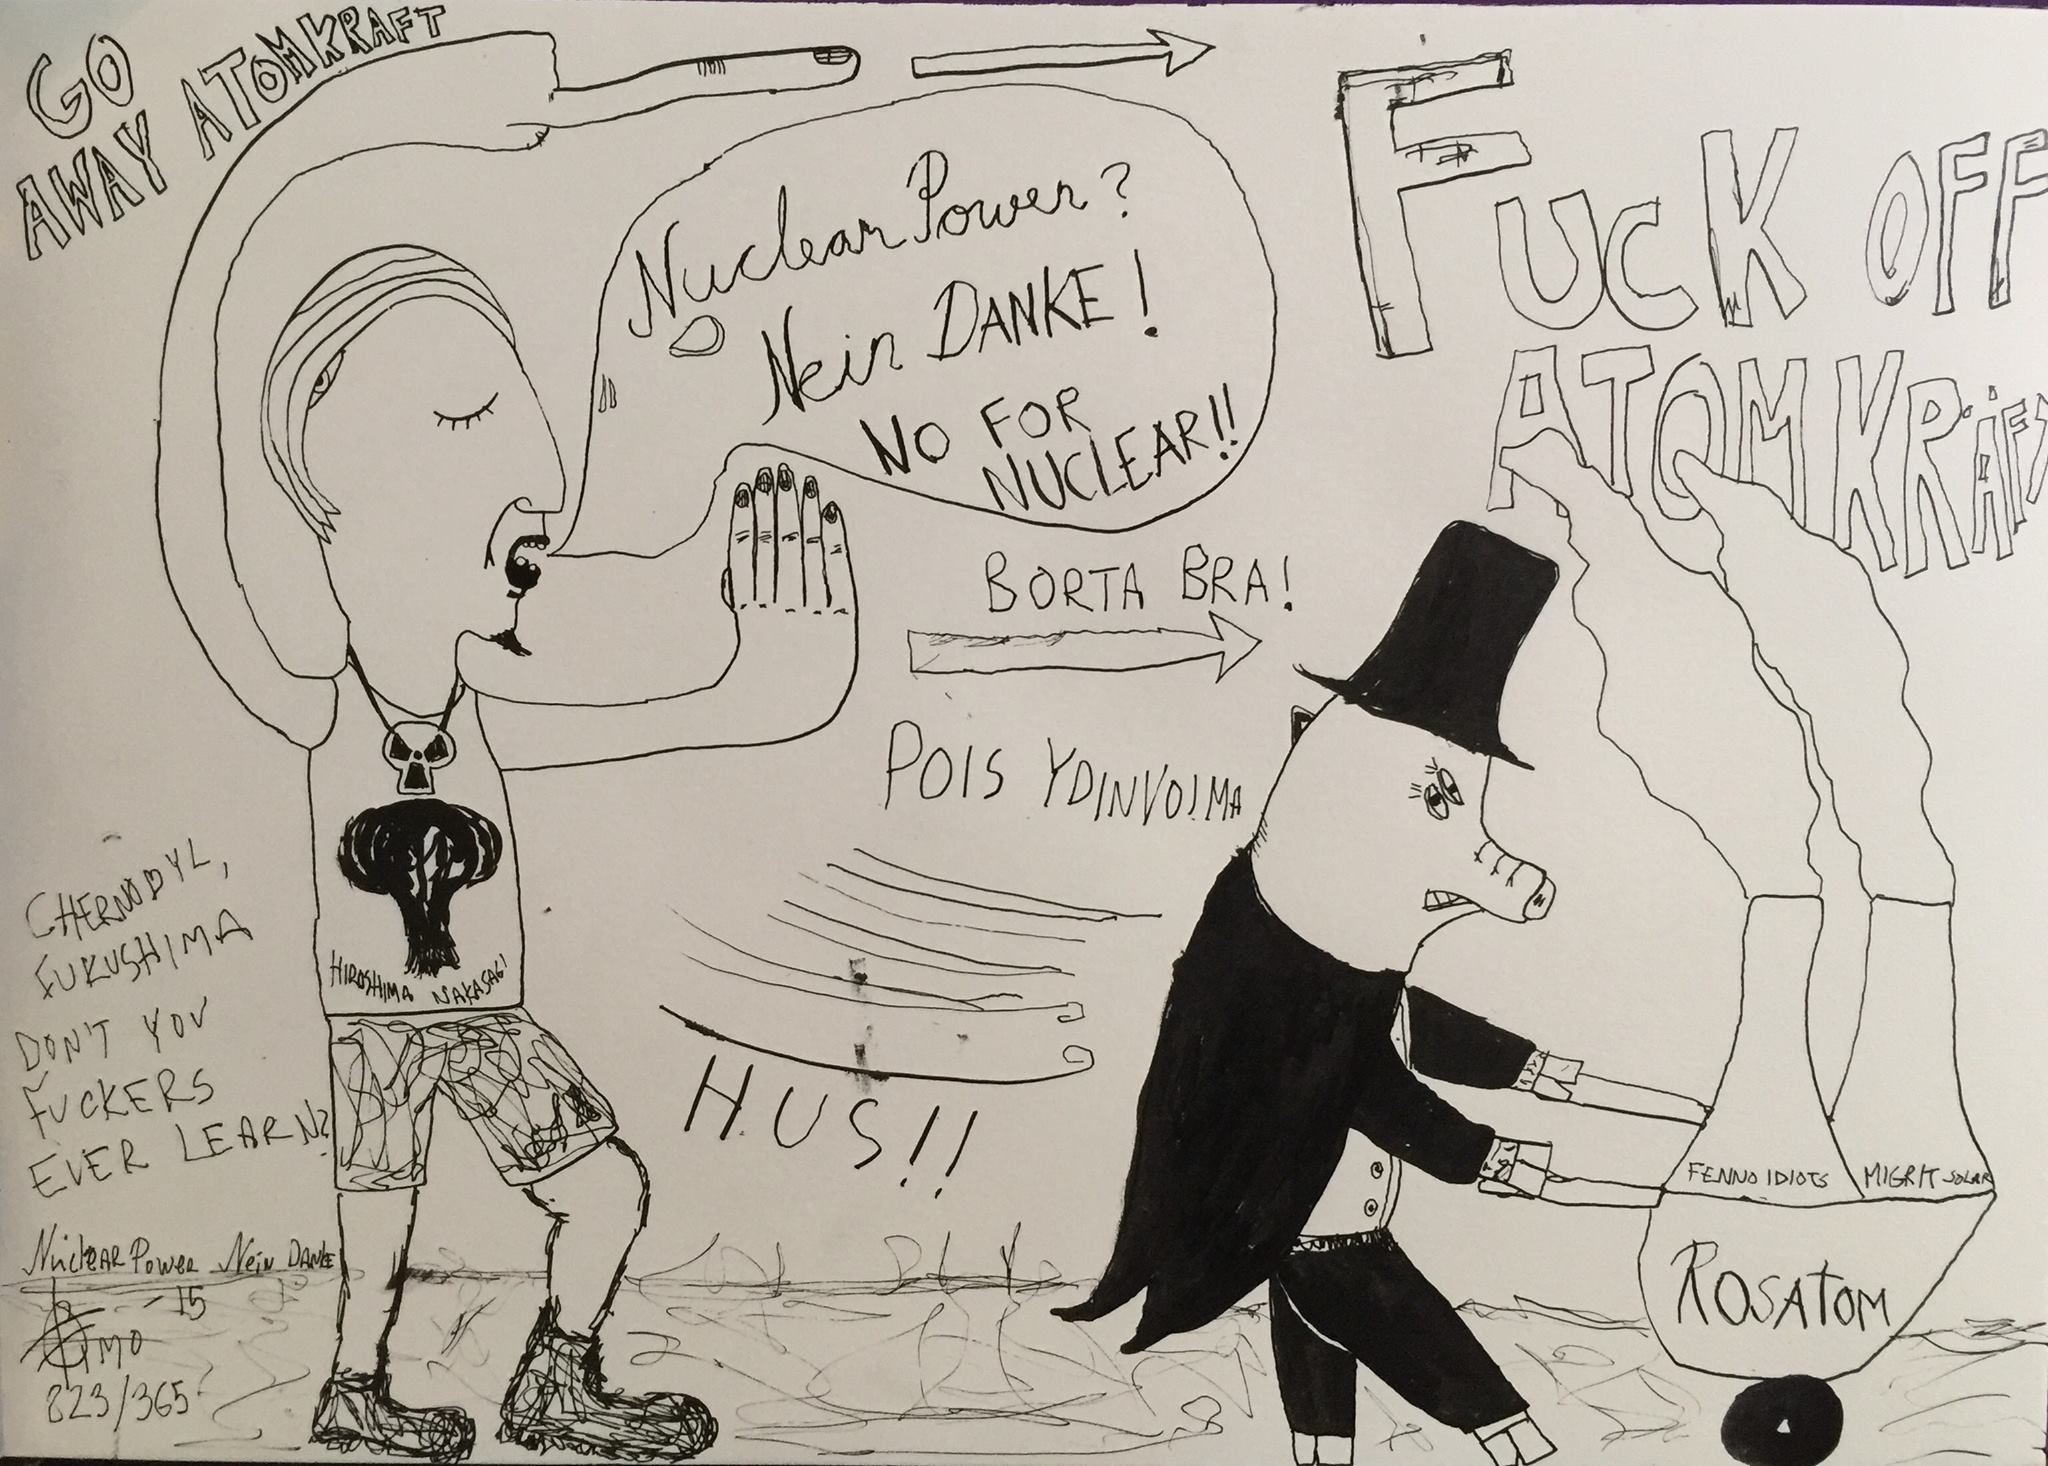 GO
AWAY ATOMKRAFT
Nuclear Power?
Nein DANKE!
NO FOR
NUCLEAR!!
FUCK OFF
ATOMKRAFT
BORTA BRA!
POIS YDINVOIMA
HIROSHIMA NAKASAGI
CHERNOBYL,
FUKUSHIMA
DON'T YOU
FUCKERS
EVER LEARN?
HUS!!
FENNO IDIOTS
MIGRIT SOLAR
ROSATOM
Nuclear Power Nein DANKE
-15
823/365